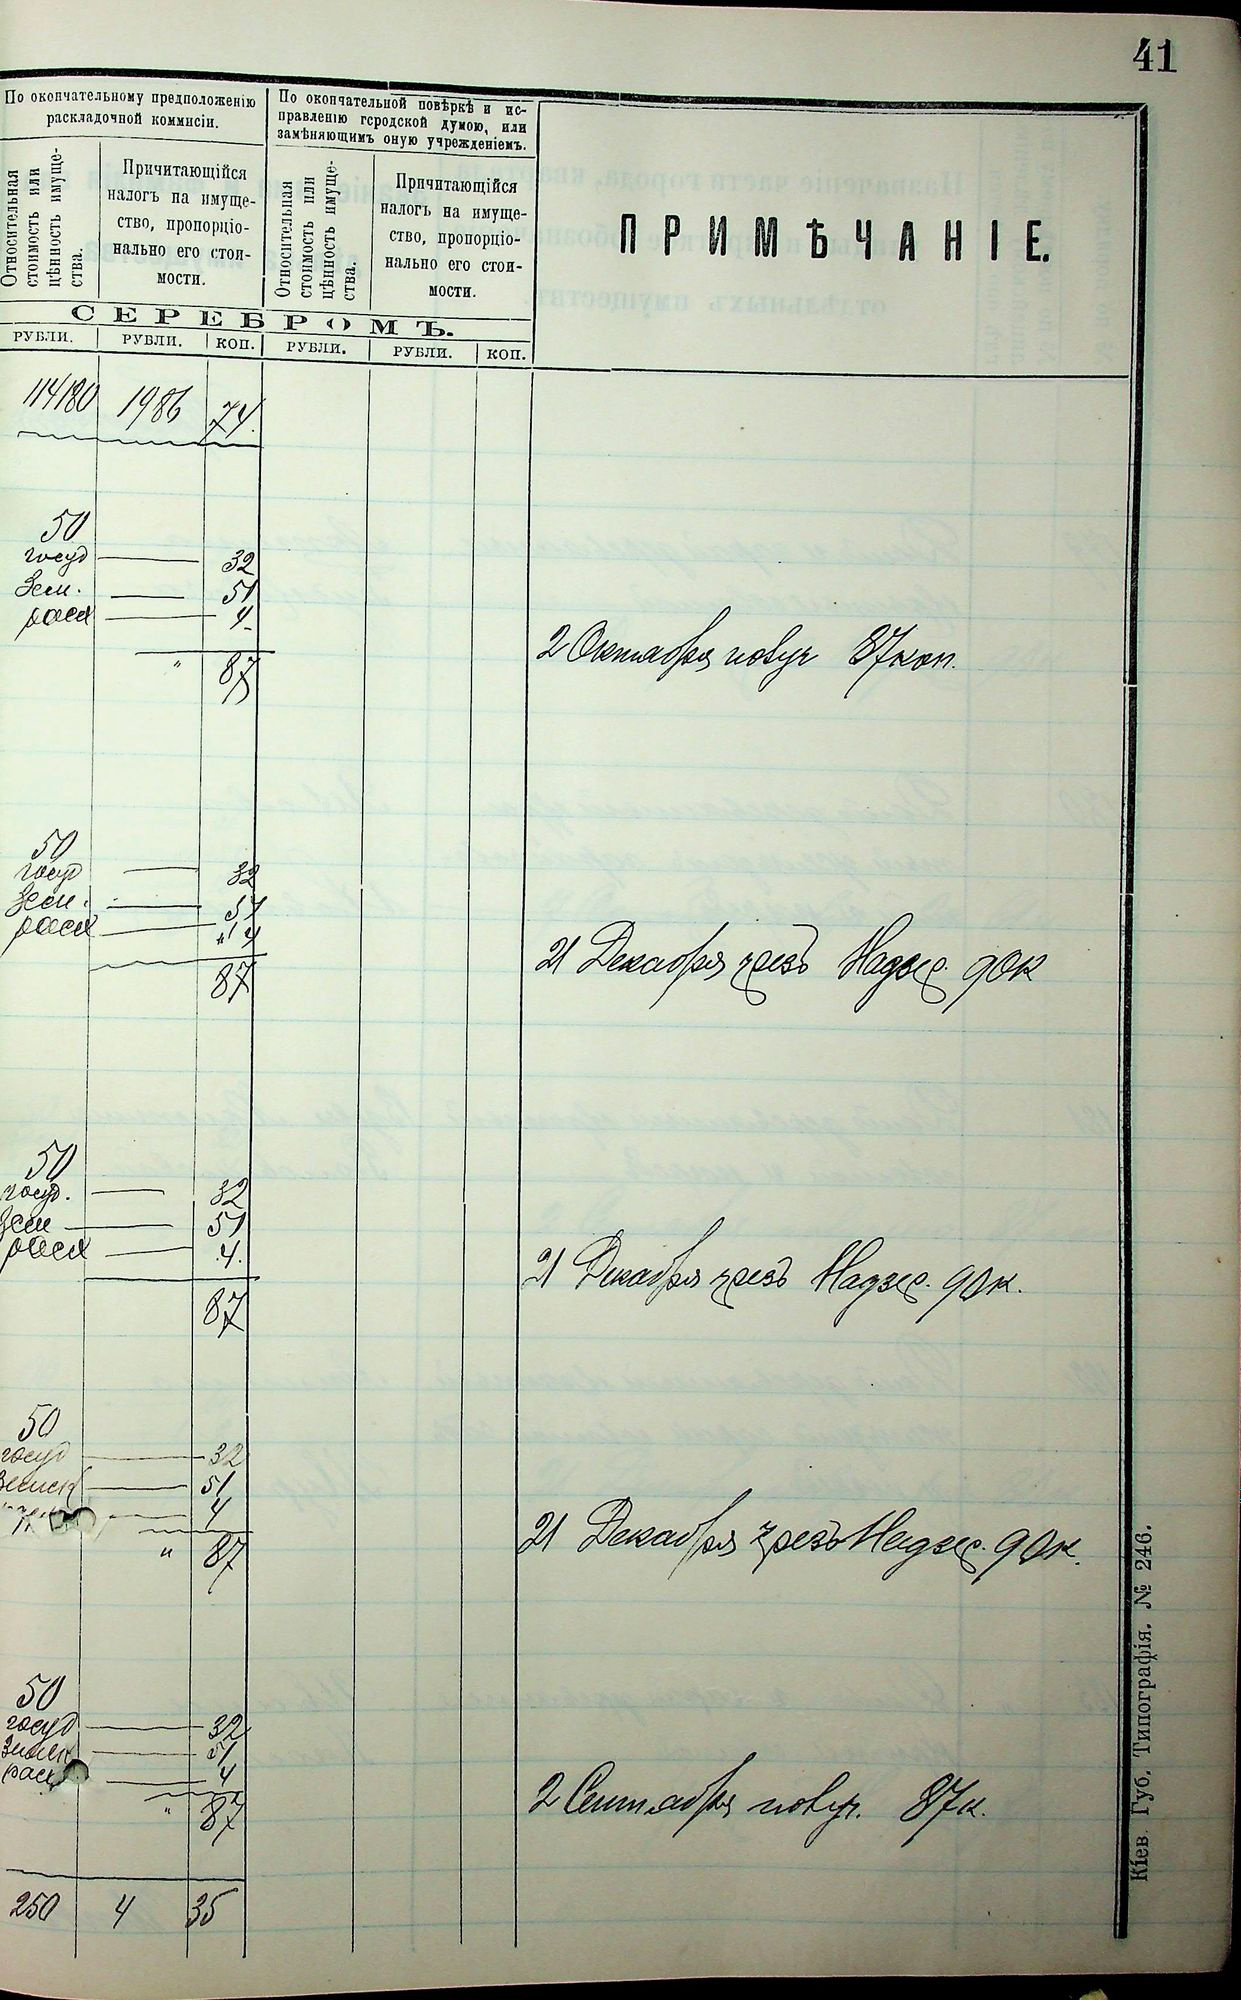 41
По окончательному предположенію
раскладочной коммисіи.
По окончательной повѣркѣ и ис-
правленію городской думою, или
замѣняющимъ оную учрежденіемъ.
Относительная
стоимость или
цѣнность имуще-
ства.
Причитающійся
налогъ на имуще-
ство, пропорціо-
нально его стои-
мости.
Относительная
стоимость или
цѣнность имуще-
ства.
Причитающійся
налогъ на имуще-
ство, пропорціо-
нально его стои-
мости.
ПРИМѢЧАНІЕ.
СЕРЕБРОМЪ.
РУБЛИ. РУБЛИ. КОП. РУБЛИ. РУБЛИ. КОП.
114180 1986 74.
50
госуд 32
Зем. 51
расх 4
" 87
2 Октября получ 87 коп.
50
госуд 32
Зем. 51
расх 4
87
21 Декабря чрезъ Надзер. 90к
50
госуд. 32
Зем 51
расх 4.
87
21 Декабря чрезъ Надзер. 90к.
50
госуд 32
Земск 51
4
" 87
21 Декабря чрезъ Надзер. 90к.
50
госуд 32
Земск 51
расх 4
" 87
2 Сентября получ. 87к.
250 4 35
Кіев. Губ. Типографія. № 246.